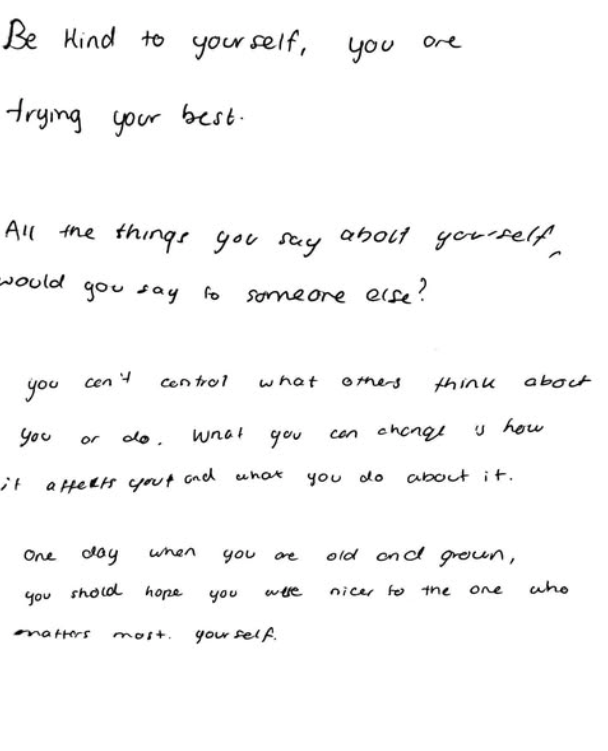 Be kind to yourself, you are
trying your best.
All the things you say about yourself,
would you say to someone else?
you can't control what others think about
you or do. What you can change is how
it affects you and what you do about it.
One day when you are old and grown,
you should hope you were nicer to the one who
matters most. yourself.